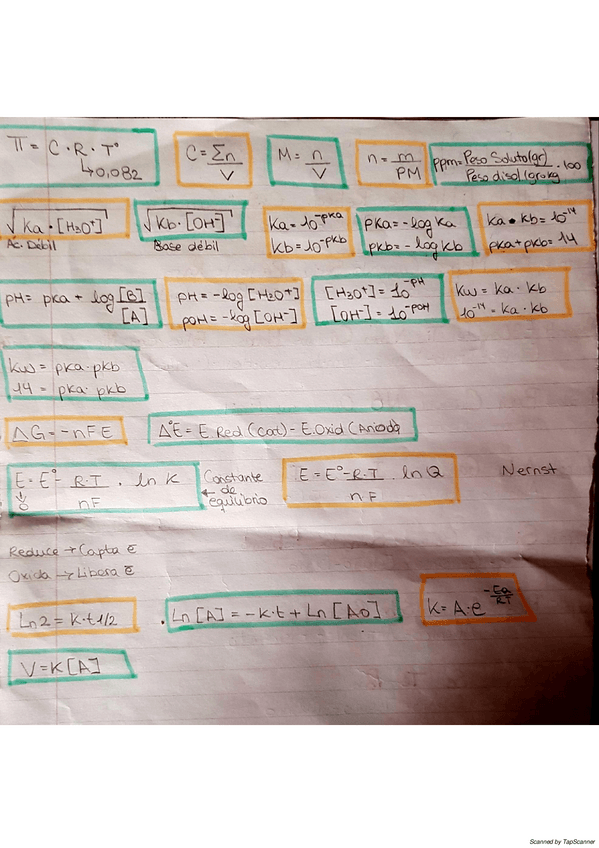 π = C · R · T°
↳0,082
C = Σn / V
M = n / V
n = m / PM
ppm = Peso Soluto(gr) / Peso disol(gr o kg) · 100
√Ka · [H₃O⁺]
Ac. Débil
√Kb · [OH⁻]
Base débil
Ka = 10^-pKa
Kb = 10^-pKb
pKa = -log Ka
pKb = -log Kb
Ka · Kb = 10^-14
pKa + pKb = 14
pH = pKa + log [B] / [A]
pH = -log [H₃O⁺]
pOH = -log [OH⁻]
[H₃O⁺] = 10^-pH
[OH⁻] = 10^-pOH
Kw = Ka · Kb
10^-14 = Ka · Kb
Kw = pKa · pKb
14 = pKa · pKb
ΔG = -nFE
Δ°E = E Red (Cat) - E.Oxid (Anodo)
E = E° - R·T / nF · ln K
↓
0
Constante
← de
equilibrio
E = E° - R·T / nF · ln Q
Nernst
Reduce → Capta e̅
Oxida → Libera e̅
Ln2 = K·t1/2
. Ln [A] = -K·t + Ln [A0]
K = A·e^-Ea/RT
V = K [A]
Scanned by TapScanner